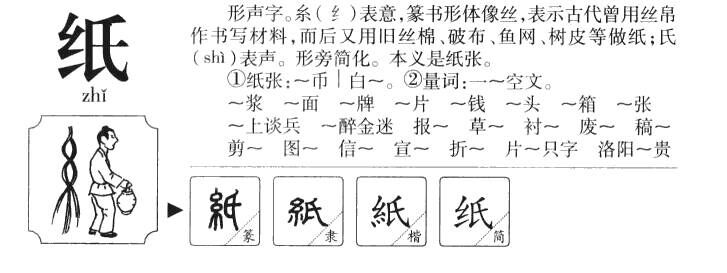 纸
zhǐ
形声字。糸(纟)表意,篆书形体像丝,表示古代曾用丝帛
作书写材料,而后又用旧丝棉、破布、鱼网、树皮等做纸;氏
(shì)表声。形旁简化。本义是纸张。
①纸张:~币｜白~。②量词:一~空文。
~浆 ~面 ~牌 ~片 ~钱 ~头 ~箱 ~张
~上谈兵 ~醉金迷 报~ 草~ 衬~ 废~ 稿~
剪~ 图~ 信~ 宣~ 折~ 片~只字 洛阳~贵
紙 紙 紙 纸
篆 隶 楷 简